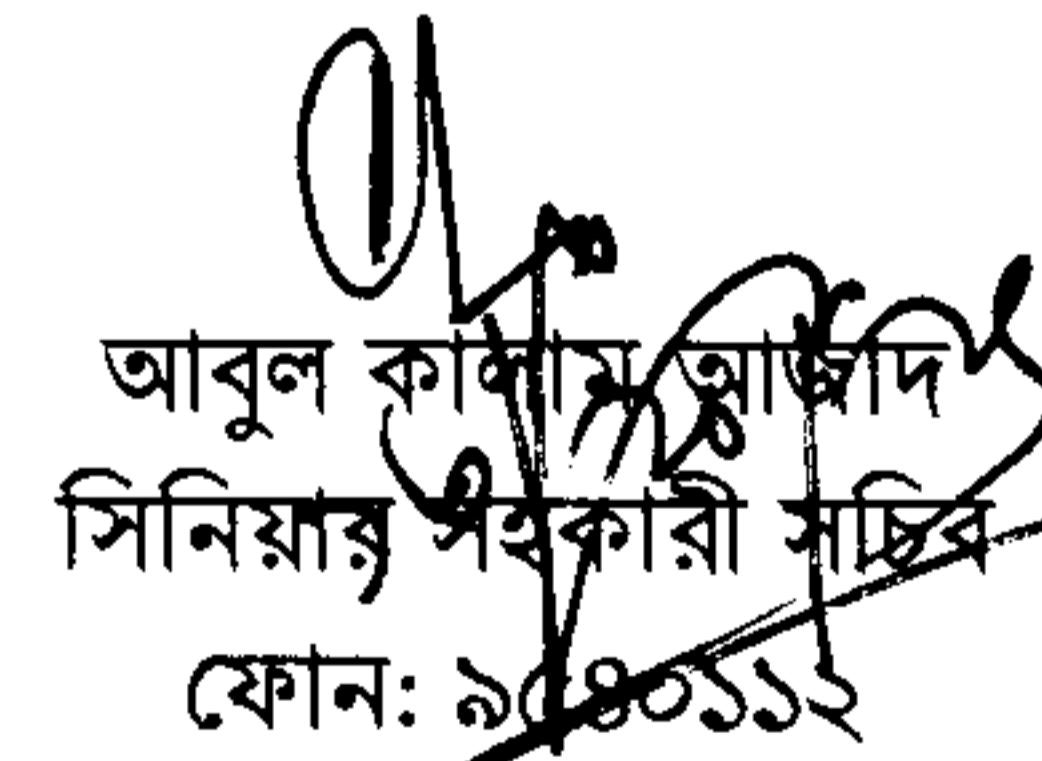 আবুল কালাম আজাদ
সিনিয়র সহকারী সচিব
ফোন: ৯৫৪০১১২